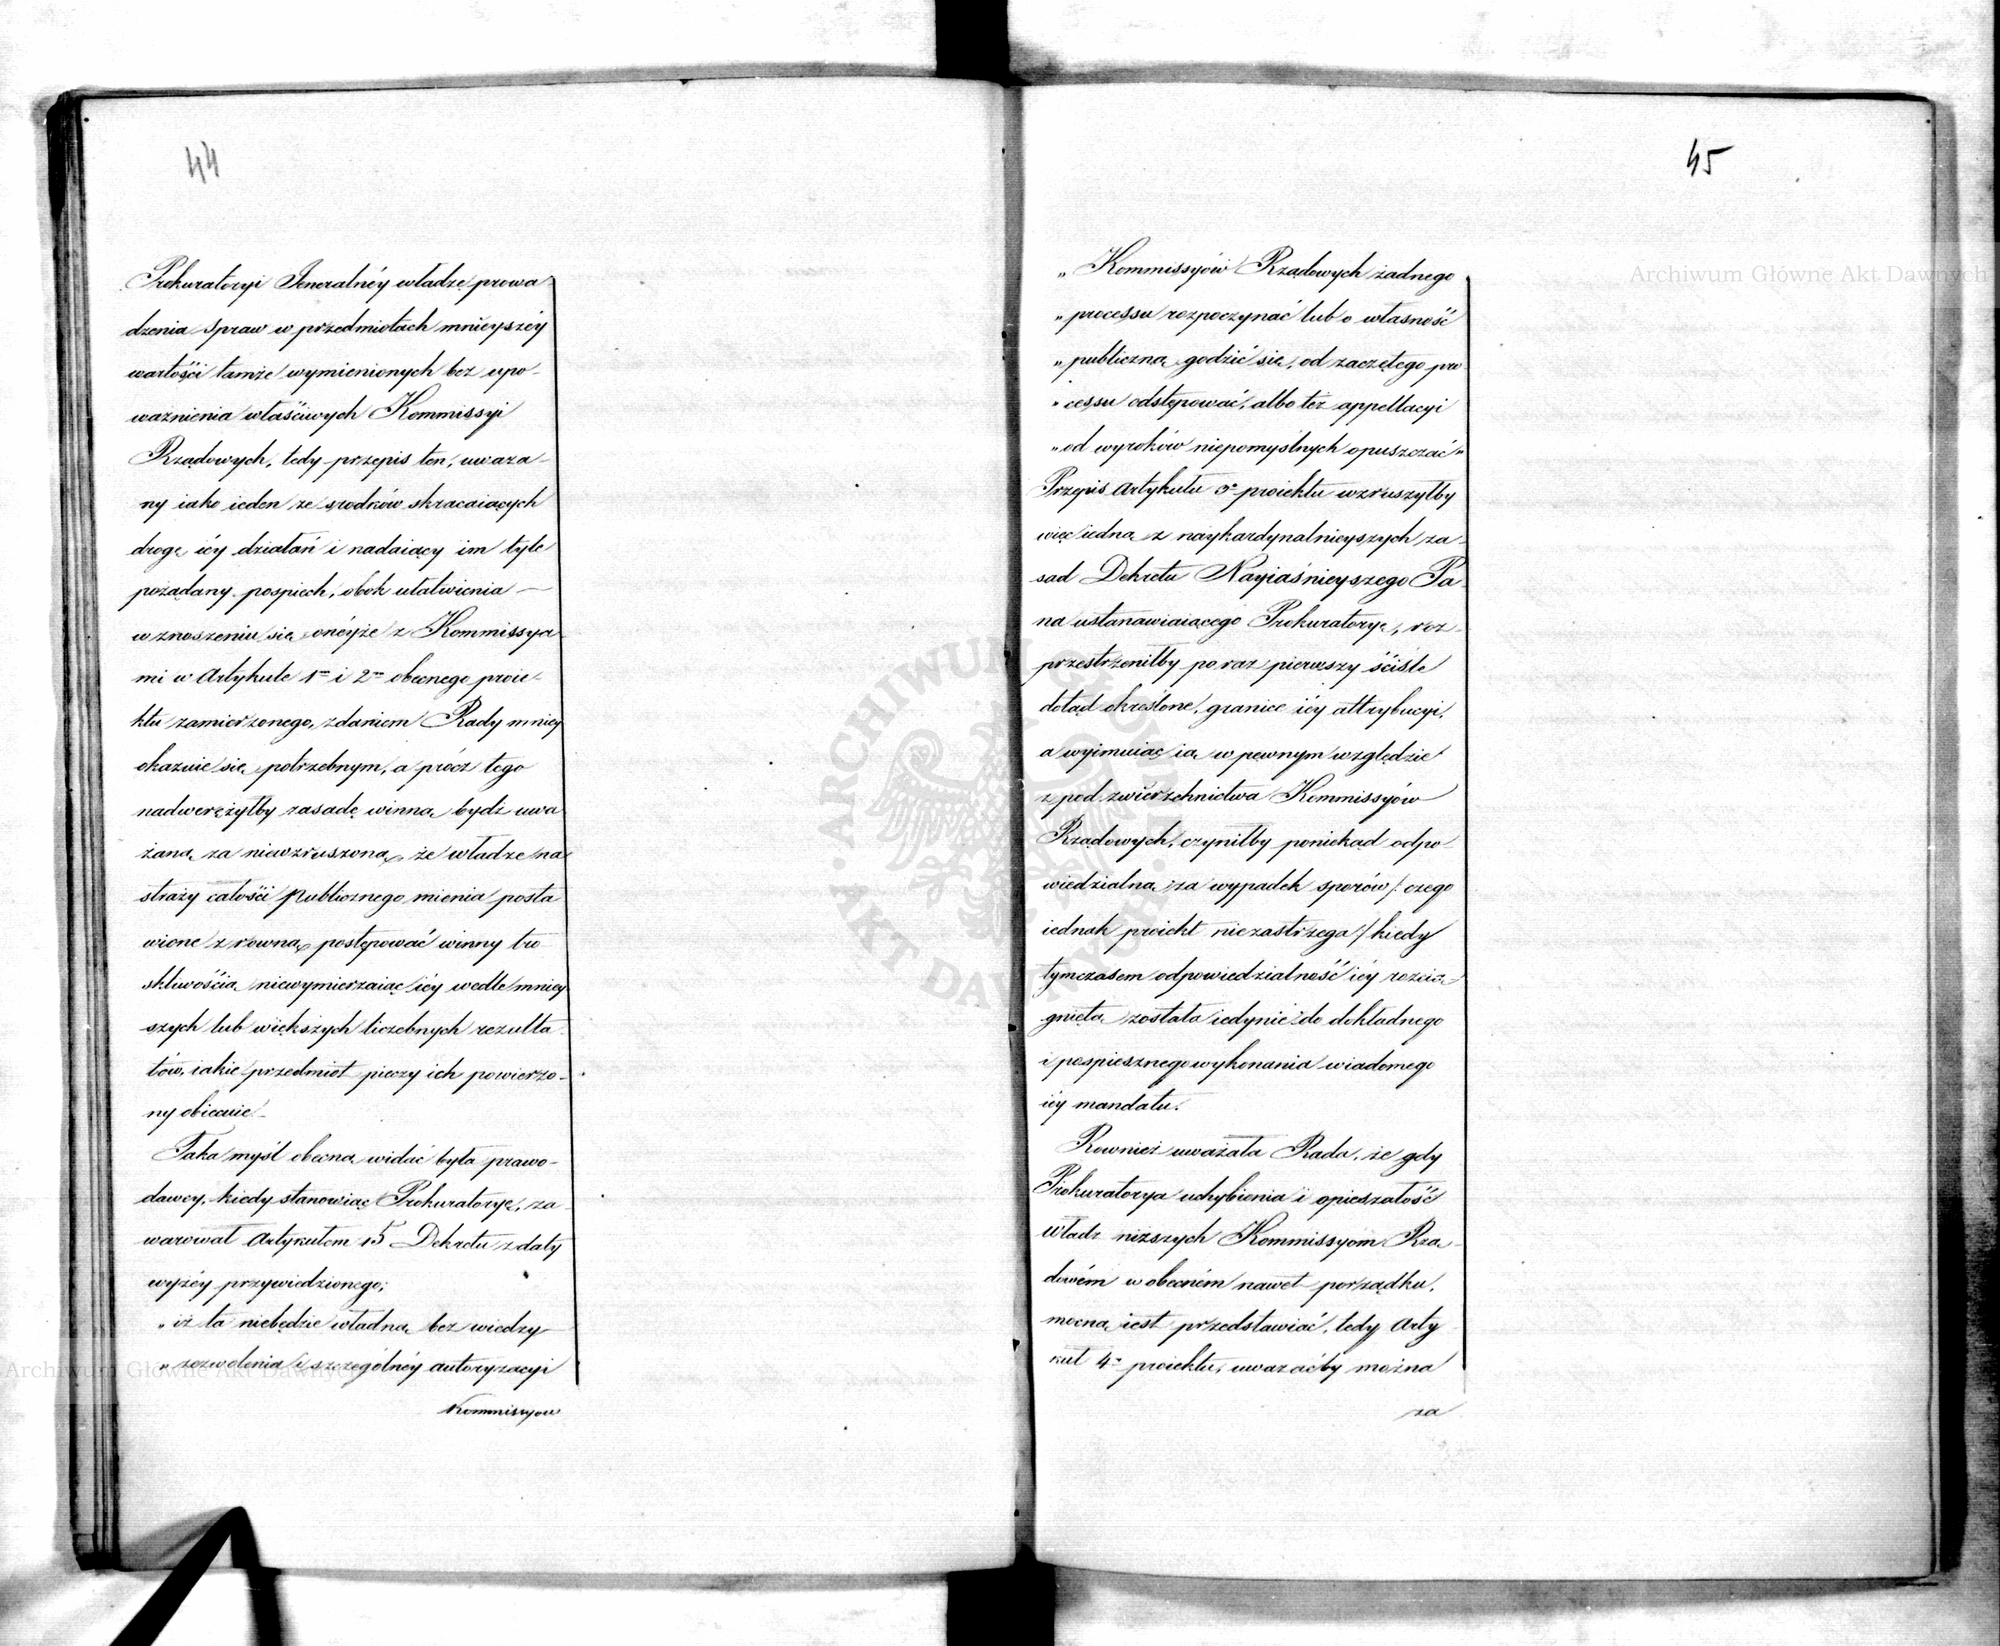 44
Prokuratoryi Jeneralnéy władzę prowa
dzenia spraw w przedmiotach mnieyszéy
wartości tamże wymienionych bez upo-
ważnienia właściwych Kommissyi
Rządowych, tedy przepis ten, uwaza-
ny iako ieden ze srodków skracaiących
drogę iéy działań i nadaiący im tyle
pożądany pospiech, obok ułatwienia —
w znoszeniu się onéyże z Kommissya
mi w Artykule 1m i 2m obecnego proie-
ktu zamierzonego, zdaniem Rady mniey
okazuie się potrzebnym, a prócz tego
nadwerężyłby zasadę winną bydź uwa
żaną za niewzruszoną, że władze na
straży całości Publicznego mienia posta
wione z równą postępować winny tro
skliwością niewymierzaiąc iéy wedle mniey
szych lub większych liczebnych rezulta
tów, iakie przedmiot pieczy ich powierzo-
ny obiecuie.
Taka myśl obecną widać była prawo-
dawcy, kiedy stanowiąc Prokuratoryę, za-
warował Artykułem 15 Dekretu z daty
wyżéy przywiedzionego;
„iż ta niebędzie władną bez wiedzy
„zezwolenia i szczególnéy autoryzacyi
Kommissyow
45
„Kommissyów Rządowych żadnego
„processu rozpoczynać lub o własność
„publiczną godzić się, od zaczętego pro
„cessu odstępować, albo też appellacyi
„od wyroków niepomyślnych opuszczać"
Przepis Artykułu 3o proiektu wzruszyłby
więc iedną z naykardynalnieyszych za-
sad Dekretu Nayiaśnieyszego Pa
na ustanawiaiącego Prokuratoryę, roz-
przestrzeniłby po raz pierwszy ściśle
dotąd określone, granice iéy attrybucyi,
a wyimuiąc ią w pewnym względzie
z pod zwierzchnictwa Kommissyów
Rządowych, czyniłby poniekąd odpo-
wiedzialną za wypadek sporów /: czego
iednak proiekt niezastrzega :/ kiedy
tymczasem odpowiedzialność iéy rozcią-
gniętą została iedynie do dokładnego
i pospiesznego wykonania wiadomego
iéy mandatu.
Rownież uważała Rada, że gdy
Prokuratorya uchybienia i opieszałość
Władz niższych Kommissyom Rzą-
dowém w obecném nawet porządku,
mocną iest przedstawiać, tedy Arty
kuł 4n proiektu, uważaćby można
za
Archiwum Główne Akt Dawnych
Archiwum Główne Akt Dawnych
ARCHIWUM GŁÓWNE AKT DAWNYCH